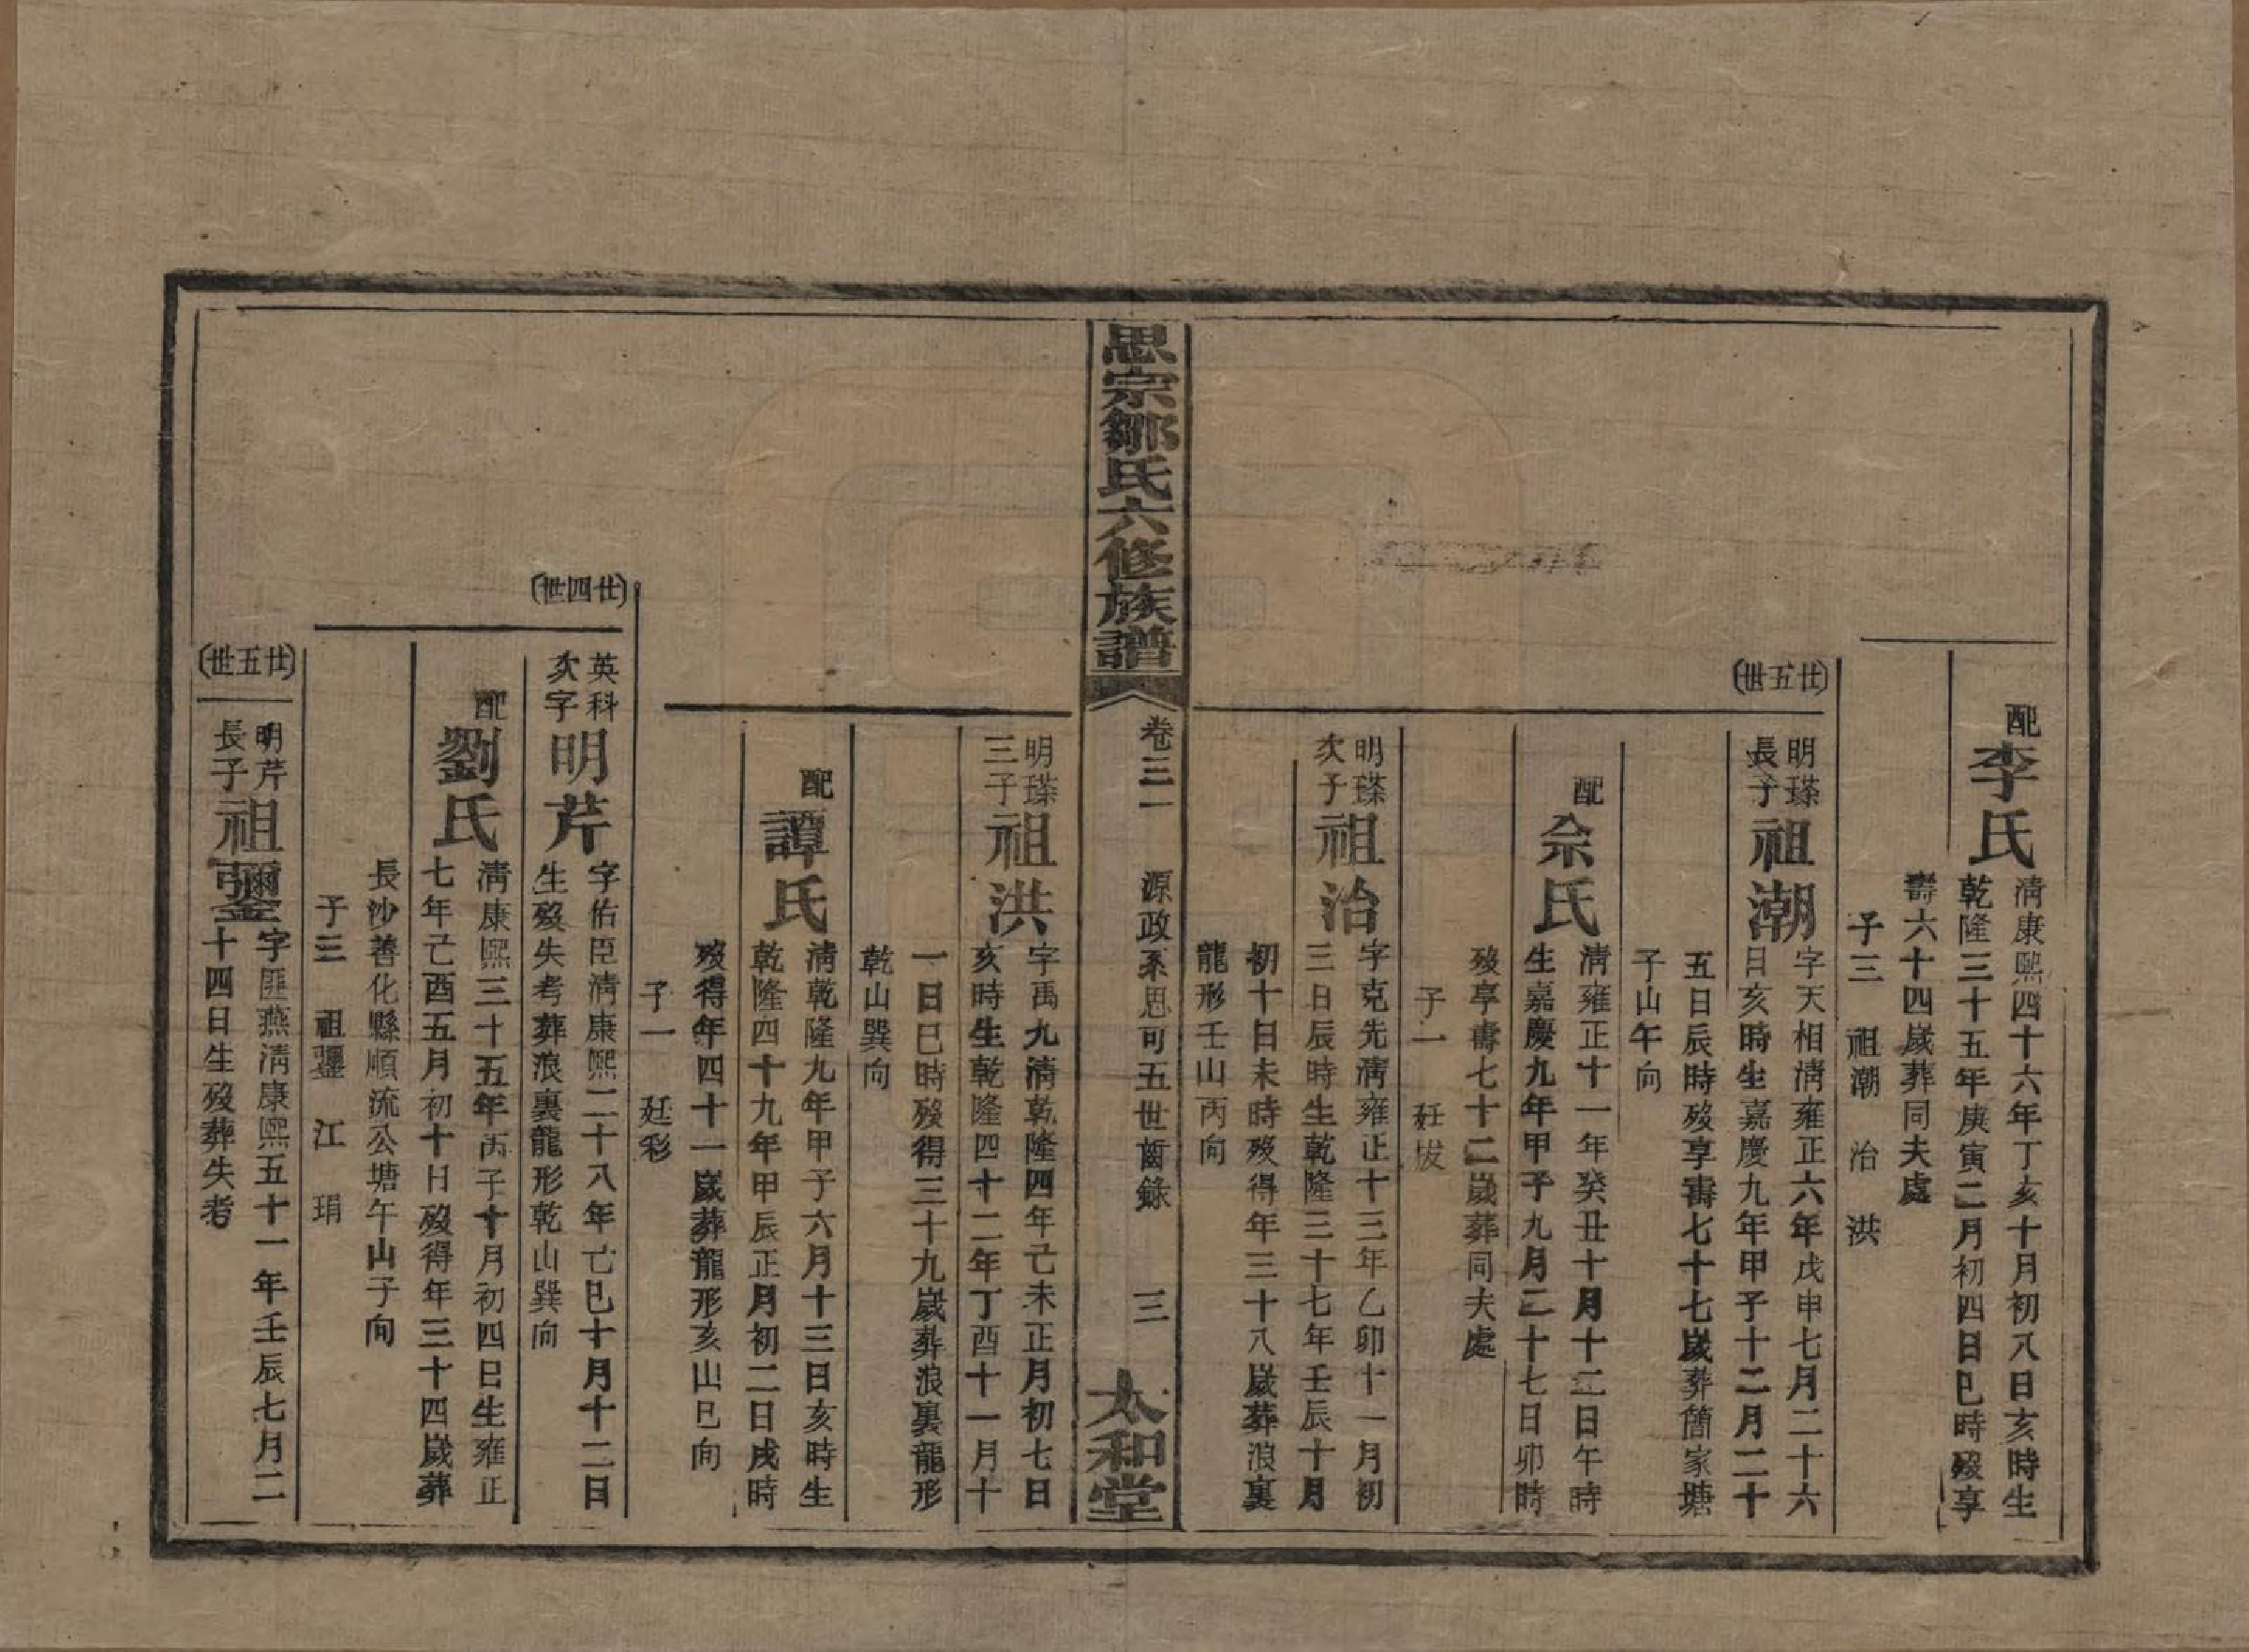 配李氏
清康熙四十六年丁亥十月初八日亥時生
乾隆三十五年庚寅二月初四日巳時歿享
壽六十四歲葬同夫處
子三 祖潮 治 洪
(廿五世)
明璨
長子
祖潮
字天相清雍正六年戊申七月二十六
日亥時生嘉慶九年甲子十二月二十
五日辰時歿享壽七十七歲葬簡家塘
子山午向
配余氏
清雍正十一年癸丑十月十二日午時
生嘉慶九年甲子九月二十七日卯時
歿享壽七十二歲葬同夫處
子一 廷拔
明璨
次子
祖治
字克先清雍正十三年乙卯十一月初
三日辰時生乾隆三十七年壬辰十月
初十日未時歿得年三十八歲葬浪裏
龍形壬山丙向
思宗鄒氏六修族譜
卷三一 源政系思可五世齒錄 三
太和堂
明璨
三子
祖洪
字禹九清乾隆四年己未正月初七日
亥時生乾隆四十二年丁酉十一月十
一日巳時歿得三十九歲葬浪裏龍形
乾山巽向
配譚氏
清乾隆九年甲子六月十三日亥時生
乾隆四十九年甲辰正月初二日戌時
歿得年四十一歲葬龍形亥山巳向
子一 廷彩
(廿四世)
英科
次字
明芹
字佑臣清康熙二十八年己巳十月十二日
生歿失考葬浪裏龍形乾山巽向
配劉氏
清康熙三十五年丙子十月初四日生雍正
七年己酉五月初十日歿得年三十四歲葬
長沙善化縣順流公塘午山子向
子三 祖璽 江 珇
(廿五世)
明芹
長子
祖璽
字匪燕清康熙五十一年壬辰七月二
十四日生歿葬失考